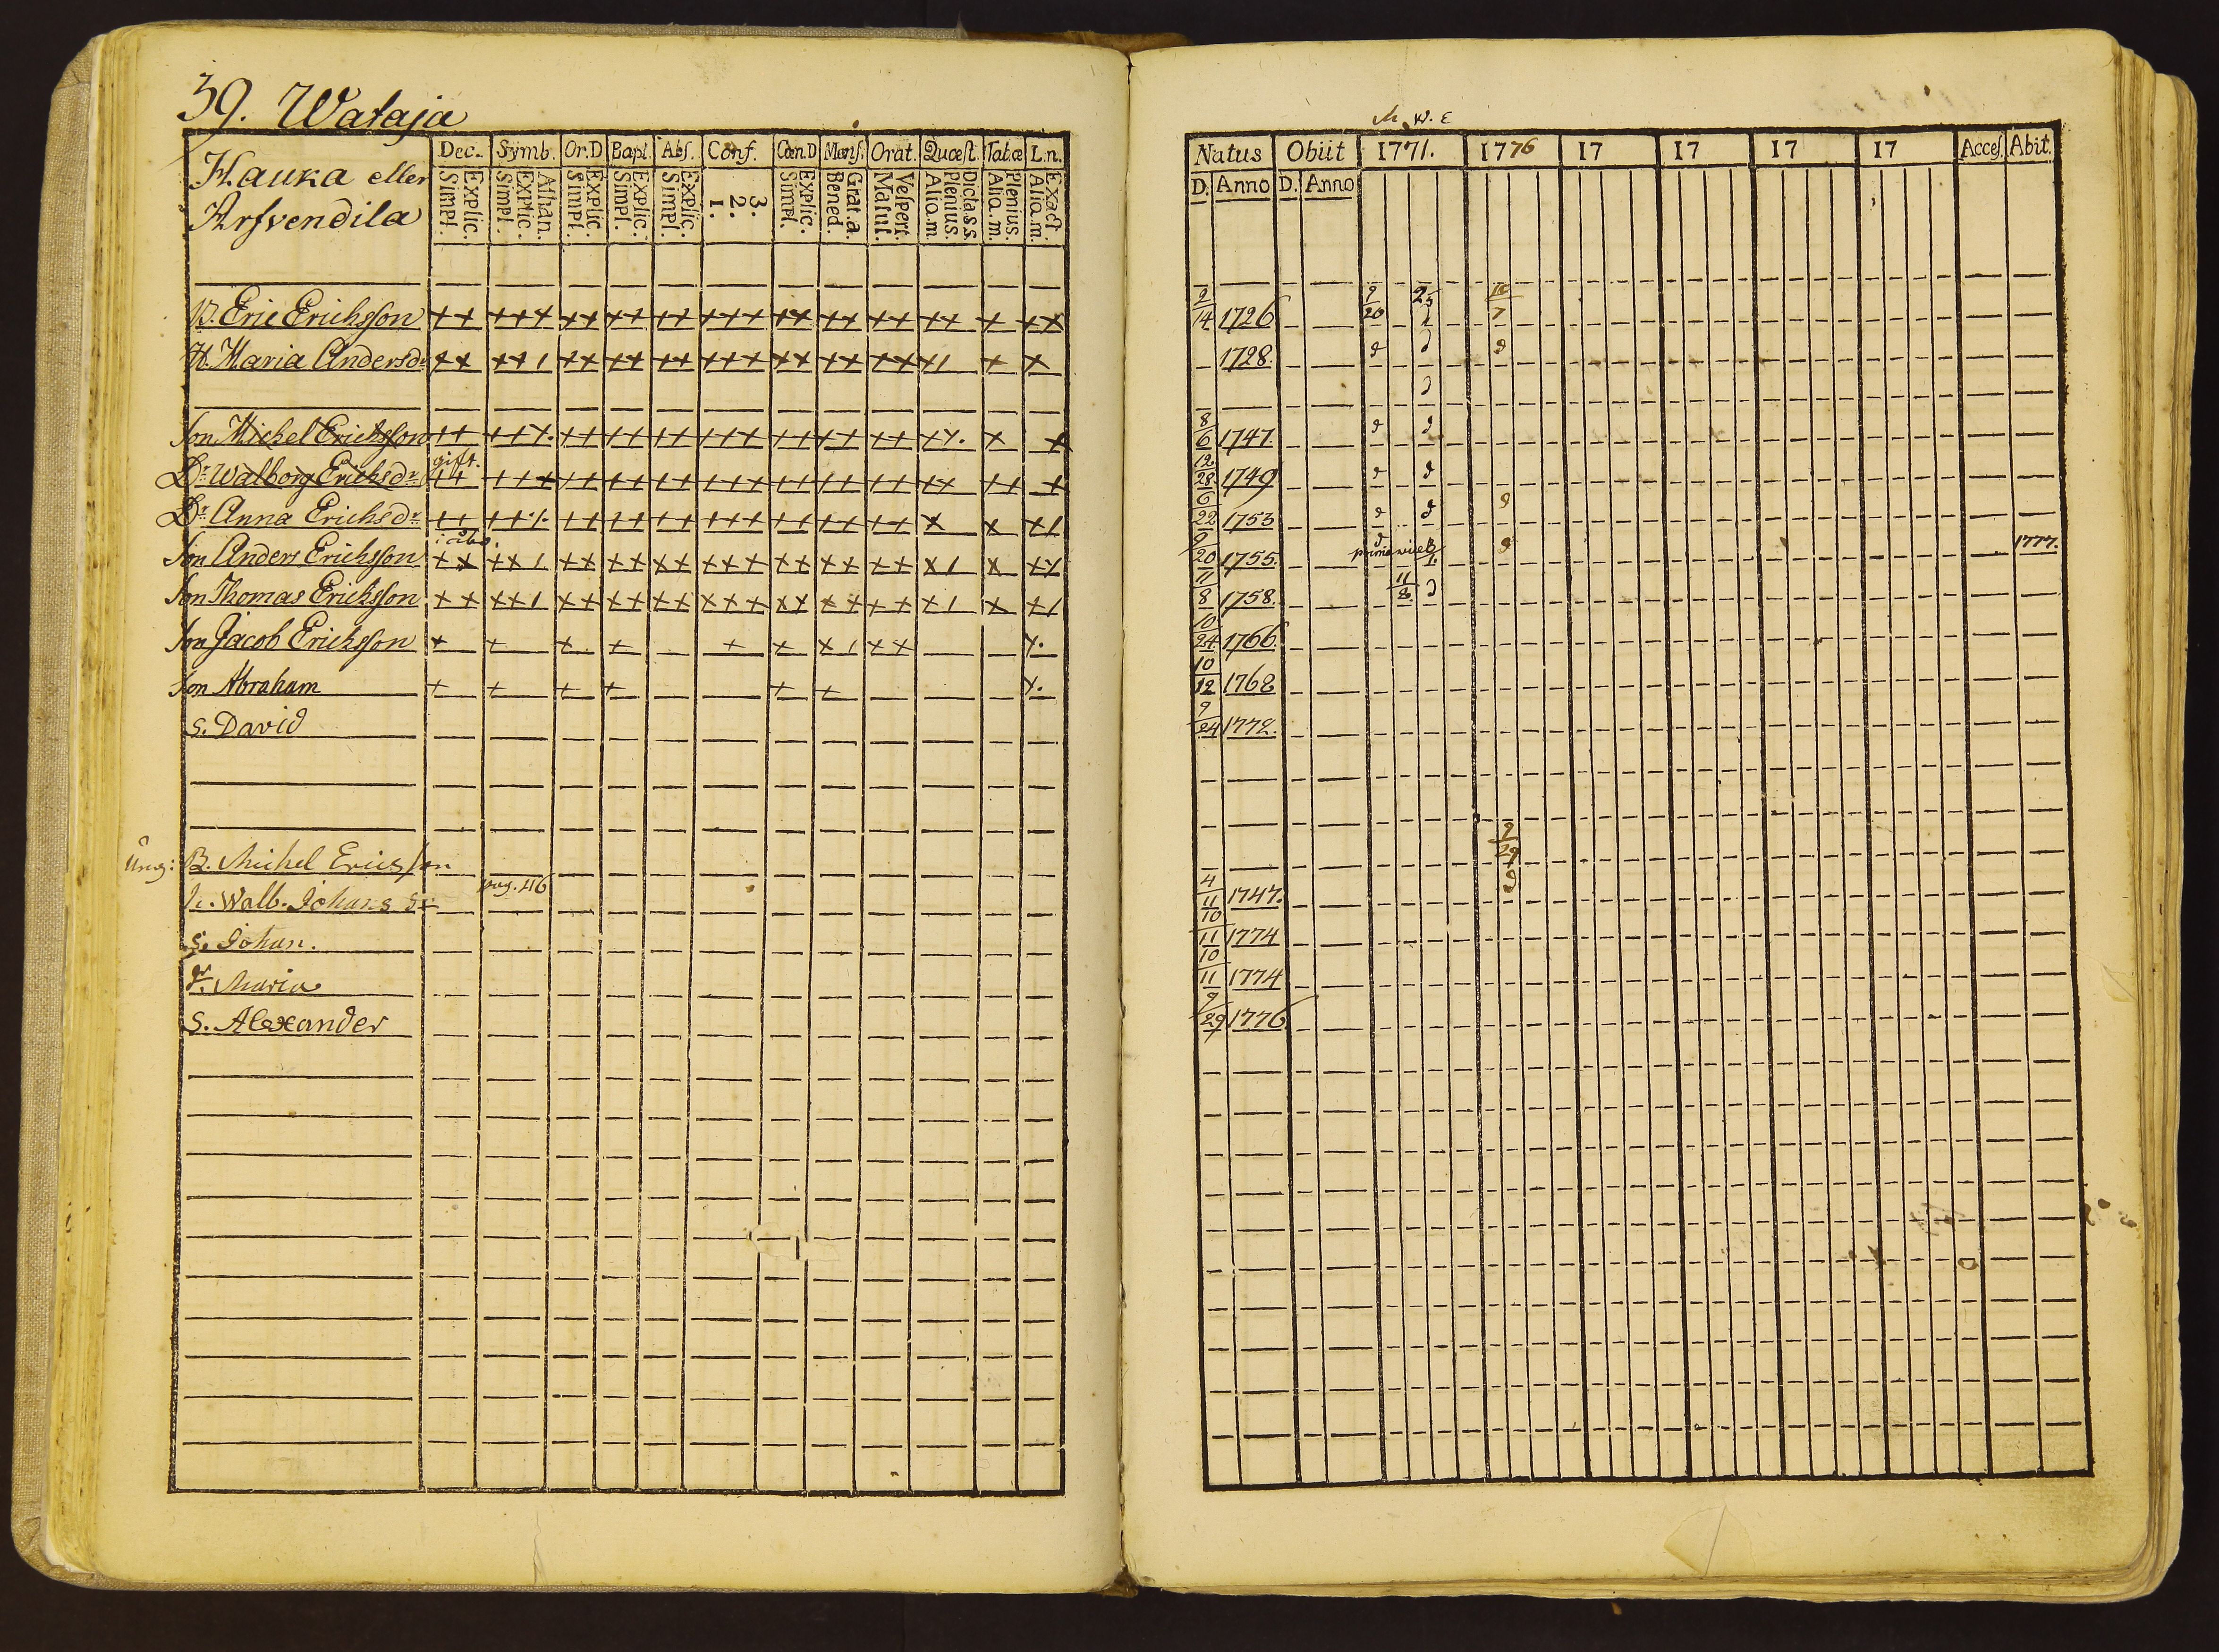 39. Wataja
Hauka eller
Arfvendila
Dec. Symb. Or.D Bapt. Abs. Conf. Cœn.D Mens. Orat. Quæst. Tab.œ L.n.
Explic. Simpl. Athan. Explic. Simpl. Explic. Simpl. Explic. Simpl. Explic. Simpl. 3. 2. 1. Explic. Simpl. Grat.a. Bened. Vespert. Matut. Dicta s.s. Plenius. Alio.m. Plenius. Alio.m. Exact. Alio.m.
B. Eric Erichsson
H. Maria Andersdr
Son Michel Erichsson
gift.
Dr Walborg Erichsdr
Dr Anna Erichsdr
i åbo.
Son Anders Erichsson
Son Thomas Erichsson
Son Jacob Erichsson
Son Abraham
S. David
Ung: B. Michel Ericsson
pag. 46
h. Walb. Johans dr
S. Johan.
dr. Maria
S. Alexander
M. W. E
Natus Obiit 1771. 1776 17 17 17 17 Acces. Abit.
D. Anno D. Anno
2/14 1726 9/20
1728.
8/6 1747
12/28 1749
6/22 1753
9/20 1755. 1777.
11/8 1758. 11/8
10/24 1766.
10/12 1768
9/24 1772.
9/29
4/11 1747.
10/11 1774
10/11 1774
9/29 1776